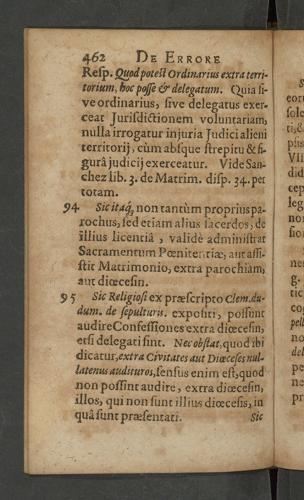 462 DE ERRORE
Resp. Quod potest Ordinarius extra terri-
torium, hoc posse & delegatum. Quia si-
ve ordinarius, sive delegatus exer-
ceat Jurisdictionem voluntariam,
nulla irrogatur injuria Judici alieni
territorij, cùm absque strepitu & fi-
gurâ judicij exerceatur. Vide San-
chez lib. 3. de Matrim. disp. 34. per
totam.
94 Sic itaq;, non tantùm proprius pa-
rochus, sed etiam alius sacerdos, de
illius licentiâ, validè administrat
Sacramentum Pœnitentiæ, aut assi-
stit Matrimonio, extra parochiam,
aut diœcesin.
95 Sic Religiosi ex præscripto Clem. du-
dum. de sepulturis. expositi, possunt
audire Confessiones extra diœcesin,
etsi delegati sint. Nec obstat, quod ibi
dicatur, extra Civitates aut Diœceses nul-
latenus audituros, sensus enim est, quod
non possint audire, extra diœcesin,
illos, qui non sunt illius diœcesis, in
quâ sunt præsentati. Sic